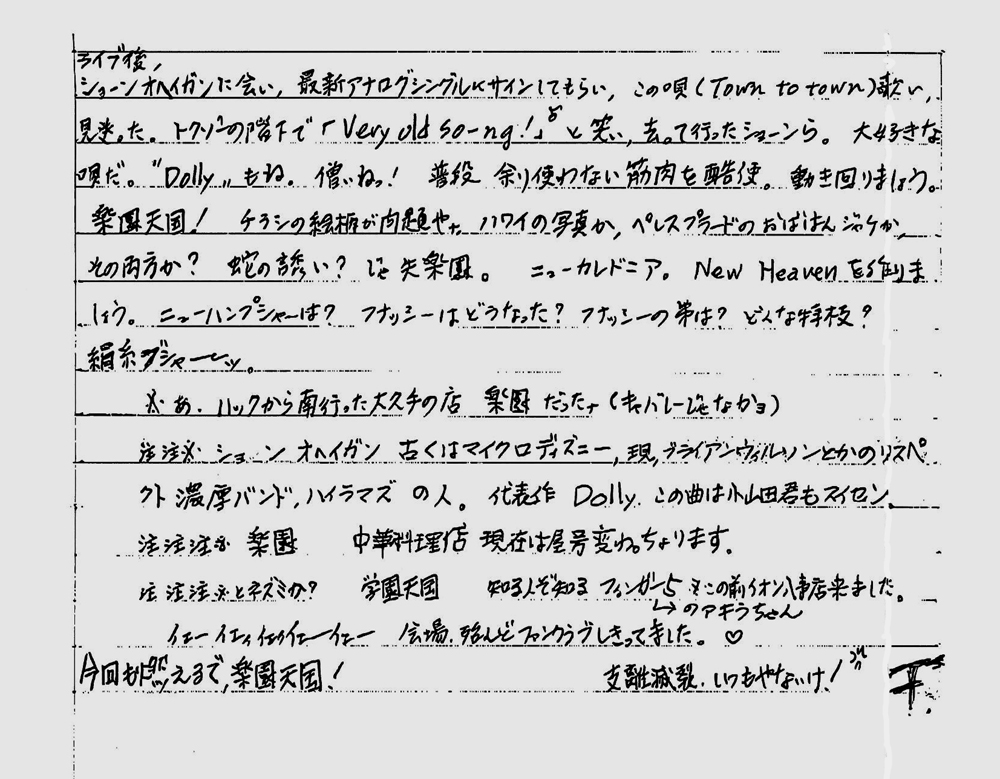 ライブ後,
ショーンオヘイガンに会い, 最新アナログシングルにサインしてもらい, この唄(Town to town)歌い,
見送った。トクゾーの階下で「Very old so-ng!」と笑い, 去って行ったショーンら。大好きな
唄だ。"Dolly"もね。僧いねっ! 普段 余り使わない筋肉を酷使。動き回りましょう。
楽園天国! チラシの絵柄が問題やな ハワイの写真か, ペレスプラードのおばはんジャケか,
その両方か? 蛇の誘い? じゃ失楽園。 ニューカレドニア。 New Heavenを創りま
しょう。ニューハンプシャーは? フナッシーはどうなった? フナッシーの弟は? どんな特技?
絹糸ブシャーッ。
※ あ. ハックから南行った大久手の店 楽園 だったナ (キャバレーじゃなかョ)
注注※ ショーン オヘイガン 古くはマイクロディズニー, 現, ブライアンウィルソンとかのリスペ
クト 濃厚バンド, ハイラマズ の人。 代表作 Dolly. この曲は小山田君もスイセン.
注注注※ 楽園 中華料理店 現在は屋号変わっちょります。
注 注注注※とネズミか? 学園天国 知る人ぞ知る フィンガー5 ※この前イオン八事店来ました。
→のアキラちゃん
イェー イェィ イェィイェーイェー 会場. 殆んどファンクラブしきってました。♡
今回も燃えるで, 楽園天国! 支離滅裂. いつもやないけ!